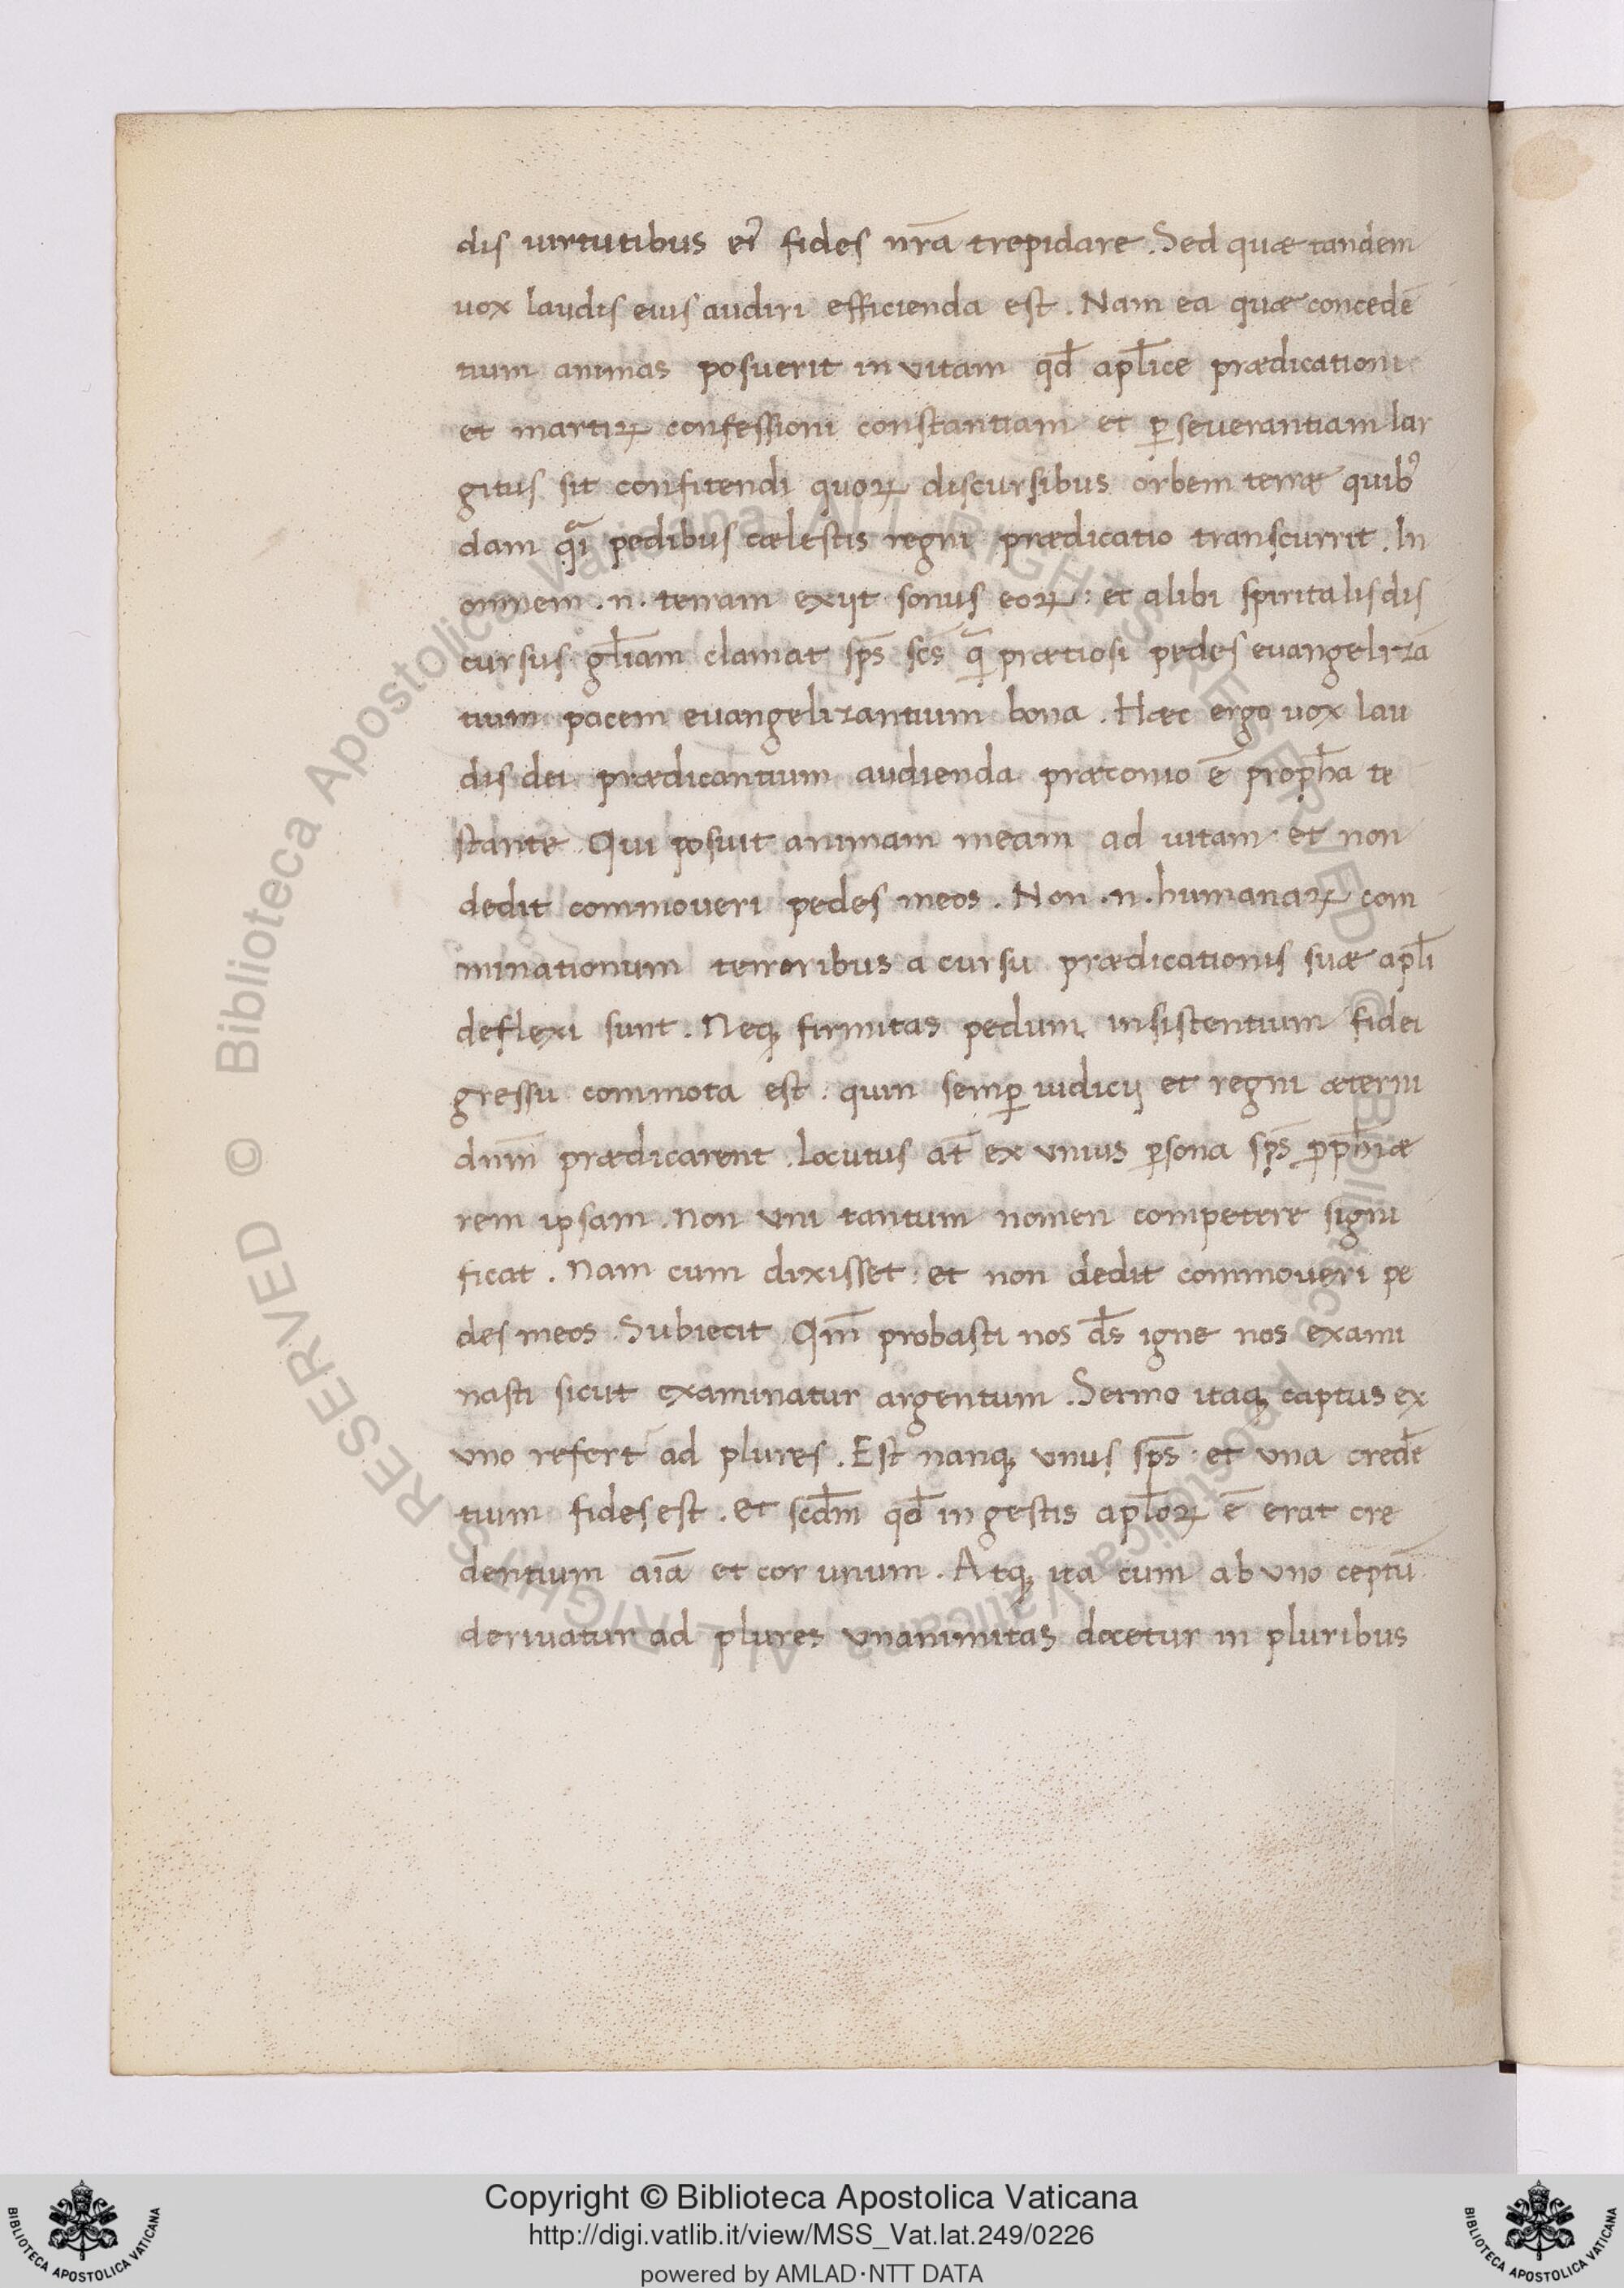 dis uirtutibus ei᷒ fides nr̄a trepidare. Sed quæ tandem
uox laudis eius audiri efficienda est. Nam ea quæ concedē
tium animas posuerit in vitam qđ apl̄ice prædicationi
et martiꝝ confessioni constantiam et ꝑseuerantiam lar
gitus sit confitendi quoꝝ discursibus orbem terræ quib᾽
dam qͣi pedibus cælestis regni prædicatio transcurrit. In
omnem .n. terram exijt sonus eoꝝ: et alibi spiritalis dis
cursus gl̄iam clamat sp̄s sc̄s qͣ prætiosi pedes euangelizā
tium pacem euangelizantium bona. Hæc ergo uox lau
dis dei prædicantium audienda præconio ē proph̄a te
stante Qui posuit animam meam ad uitam et non
dedit commoueri pedes meos. Non .n. humanaꝝ com
minationum terroribus a cursu prædicationis suæ apl̄i
deflexi sunt. Neqꝫ firmitas pedum insistentium fidei
gressu commota est: quin semꝑ iudicij et regni æterni
dn̄m prædicarent. Locutus at̄ ex unius ꝑsona sp̄s ꝓph̄iæ
rem ipsam. Non uni tantum nomen competere signi
ficat. Nam cum dixisset: et non dedit commoueri pe
des meos. Subiecit Qm̄ probasti nos d̄s igne nos exami
nasti sicut examinatur argentum. Sermo itaqꝫ captus ex
uno refert̄ ad plures. Est nanqꝫ unus sp̄s: et una credē
tium fides est. et scdm̄ qđ in gestis apl̄oꝝ ē erat cre
dentium aīa et cor unum. Atqꝫ ita cum ab uno ceptū
deriuatur ad plures unanimitas docetur in pluribus
Copyright © Biblioteca Apostolica Vaticana
http://digi.vatlib.it/view/MSS_Vat.lat.249/0226
powered by AMLAD·NTT DATA